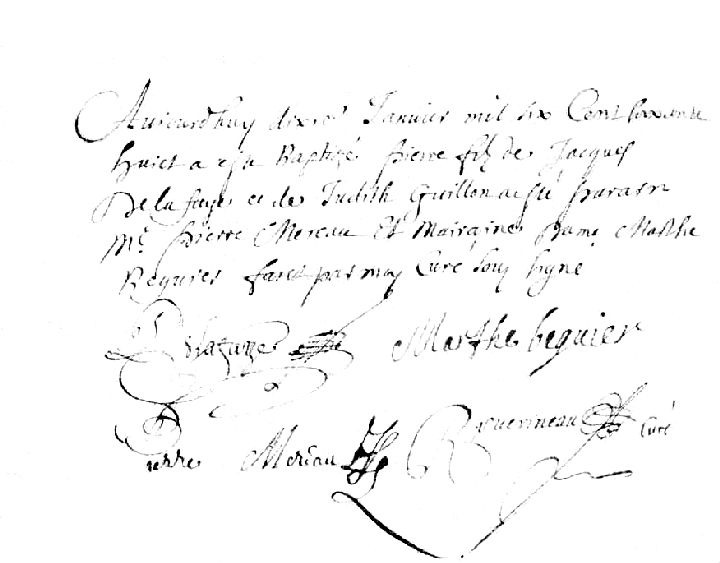 Aujourdhuy dixie Janvier mil six Cent soixante
huict a esté Baptizé pierre filz de Jacques
Delafaye et de Judith Guillon a esté parain
Me pierre Mereau Et Mairaine Dame Marthe
Bequier faict par moy Curé sous signe
Delafaye Marthe bequier
Pierre Mereau Guerineau Curé